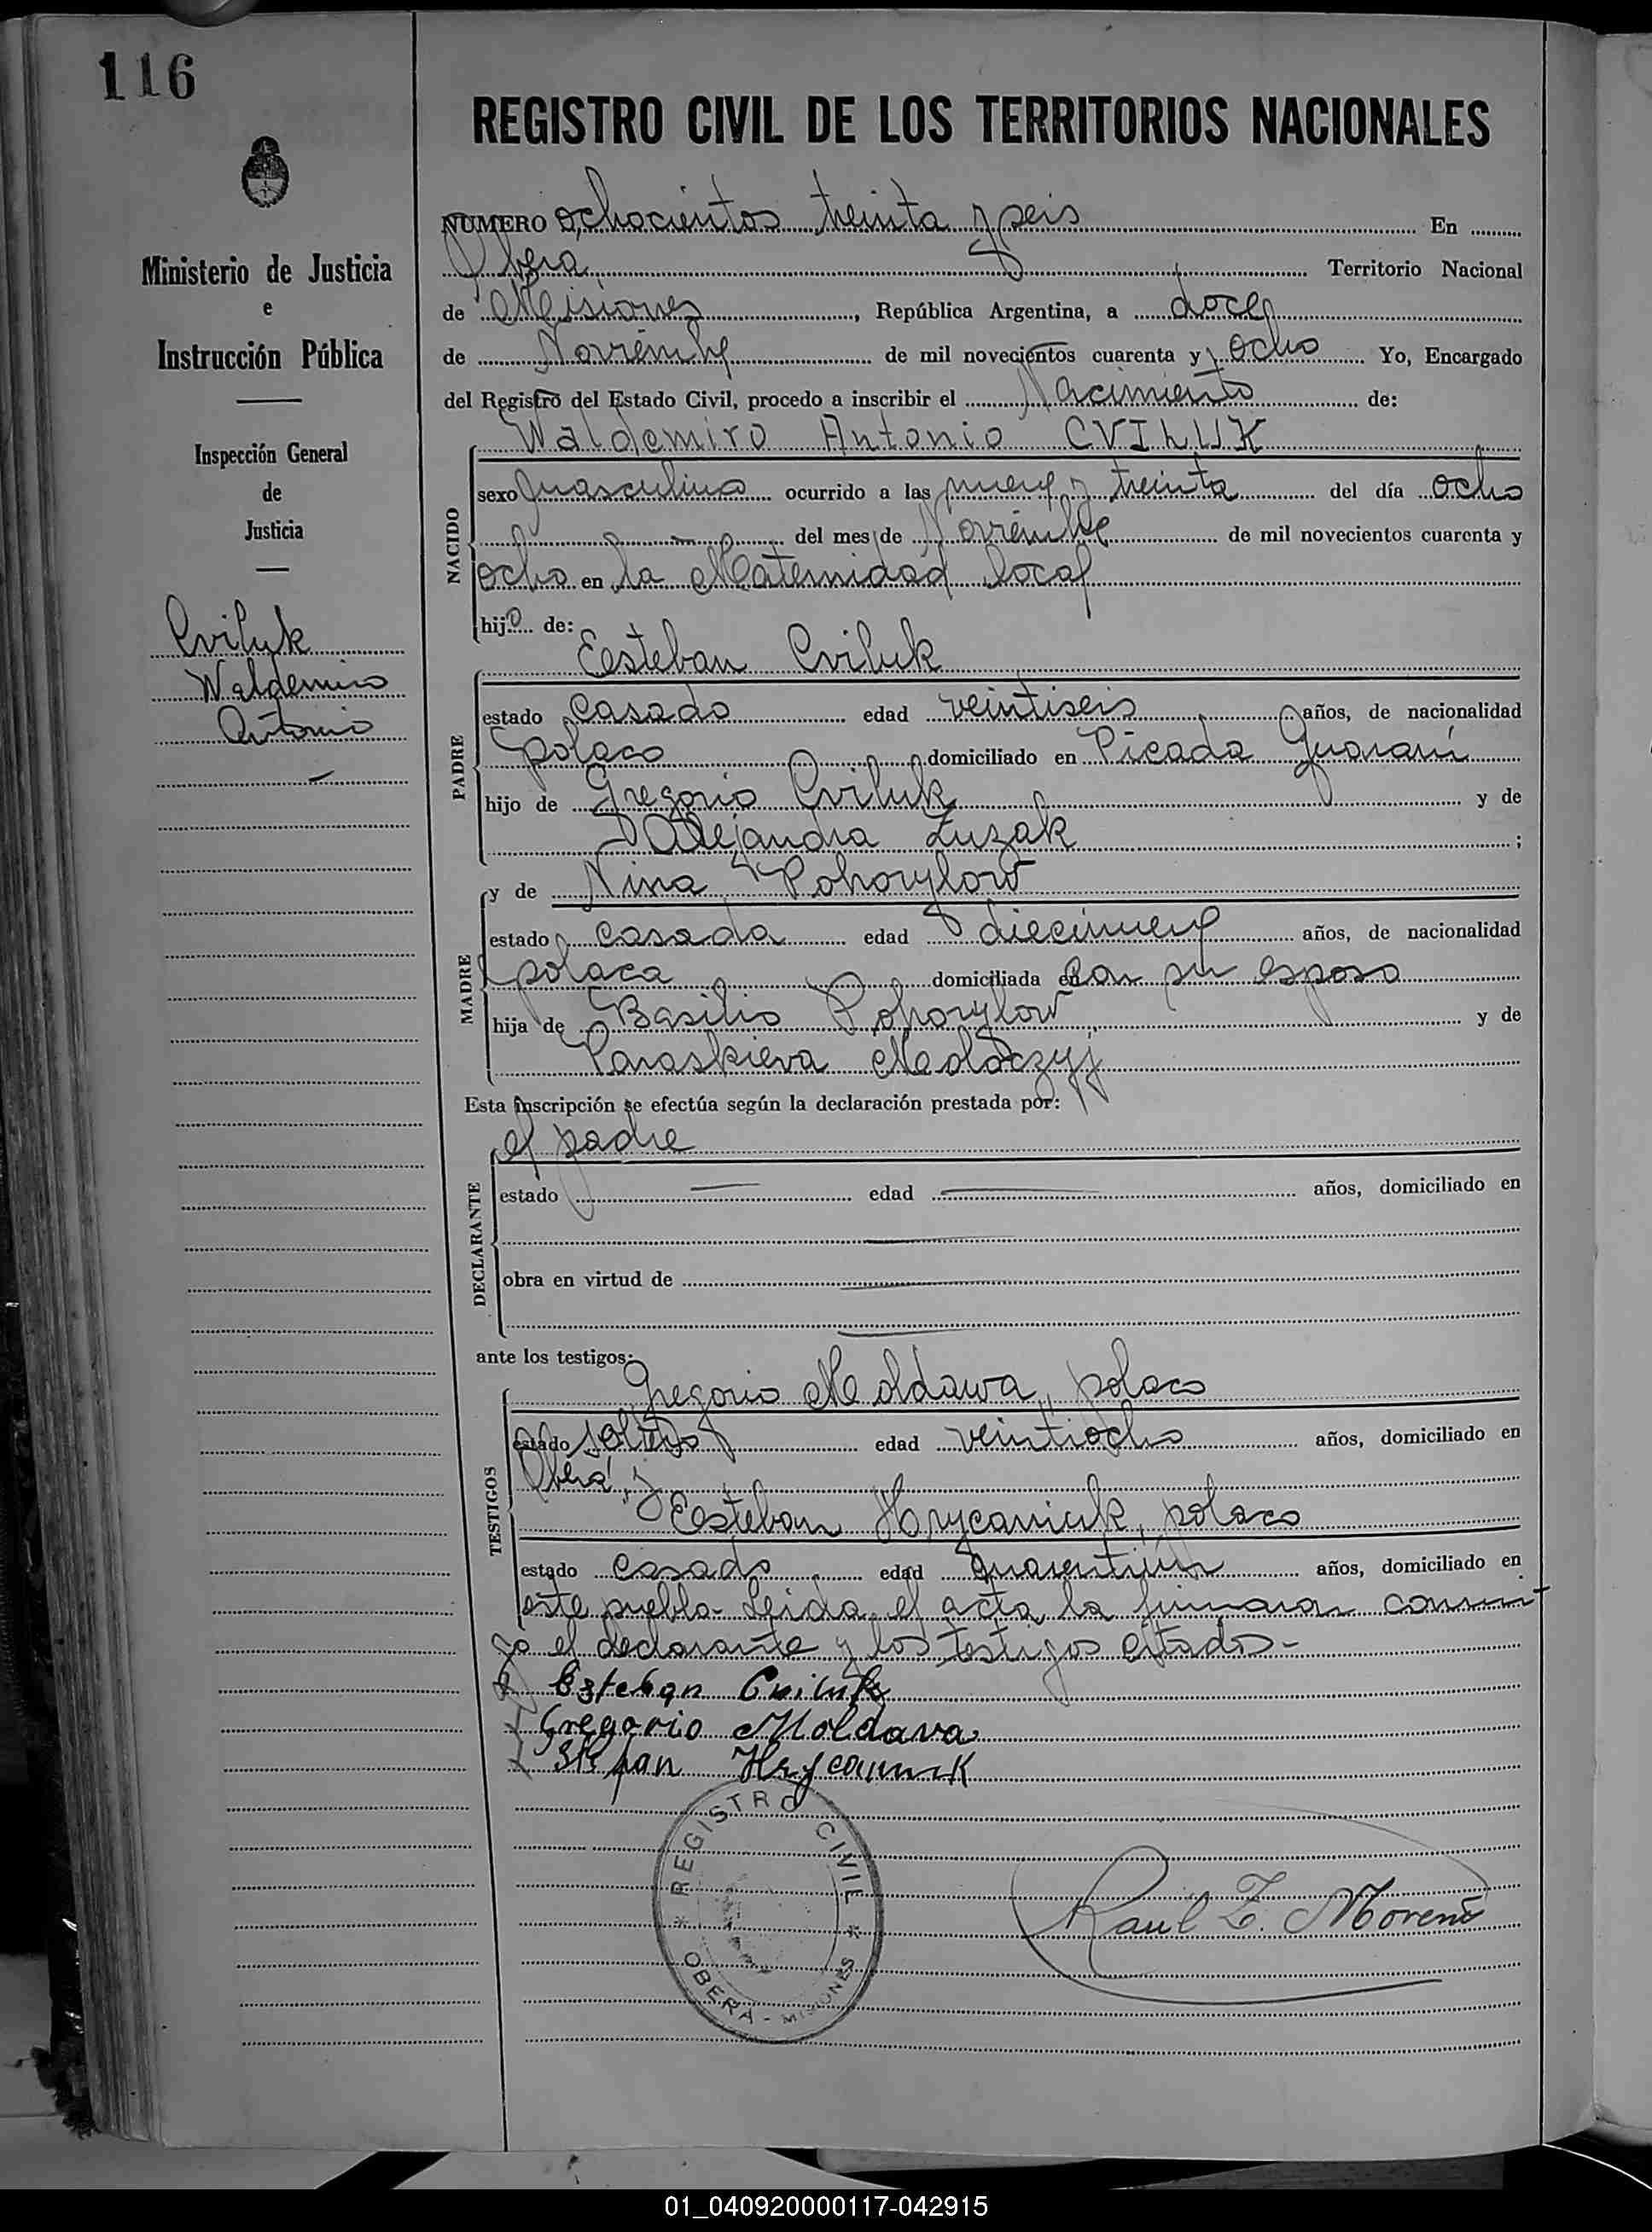 116
REGISTRO CIVIL DE LOS TERRITORIOS NACIONALES
Ministerio de Justicia
e
Instrucción Pública
Inspección General
de
Justicia
Cviluk
Waldemiro
Antonio
NUMERO ochocientos treinta y seis En
Oberá Territorio Nacional
de Misiones, República Argentina, a doce
de Noviembre de mil novecientos cuarenta y ocho Yo, Encargado
del Registro del Estado Civil, procedo a inscribir el Nacimiento de:
Waldemiro Antonio CVILUK
NACIDO
sexo masculino ocurrido a las nueve y treinta del día ocho
del mes de Noviembre de mil novecientos cuarenta y
ocho en la Maternidad local
hijo de:
Esteban Cviluk
PADRE
estado casado edad veintiseis años, de nacionalidad
polaco domiciliado en Picada Guaraní
hijo de Gregorio Cviluk y de
Alejandra Luzak ;
MADRE
y de Nina Pohorylow
estado casada edad diecinueve años, de nacionalidad
polaca domiciliada en con su esposo
hija de Basilio Pohorylow y de
Paraskieva Moloczyj
Esta inscripción se efectúa según la declaración prestada por:
el padre
DECLARANTE
estado edad años, domiciliado en
obra en virtud de
ante los testigos:
Gregorio Moldawa, polaco
TESTIGOS
estado soltero edad veintiocho años, domiciliado en
Oberá, y
Esteban Hrycaniuk, polaco
estado casado edad años, domiciliado en
este pueblo. Leida el acta, la firmaron conmi-
go el declarante y los testigos citados-
Esteban Cviluk
Gregorio Moldava
Stepan Hrycaniuk
REGISTRO CIVIL
OBERA - MISIONES
Raul Z. Moreno
01_040920000117-042915